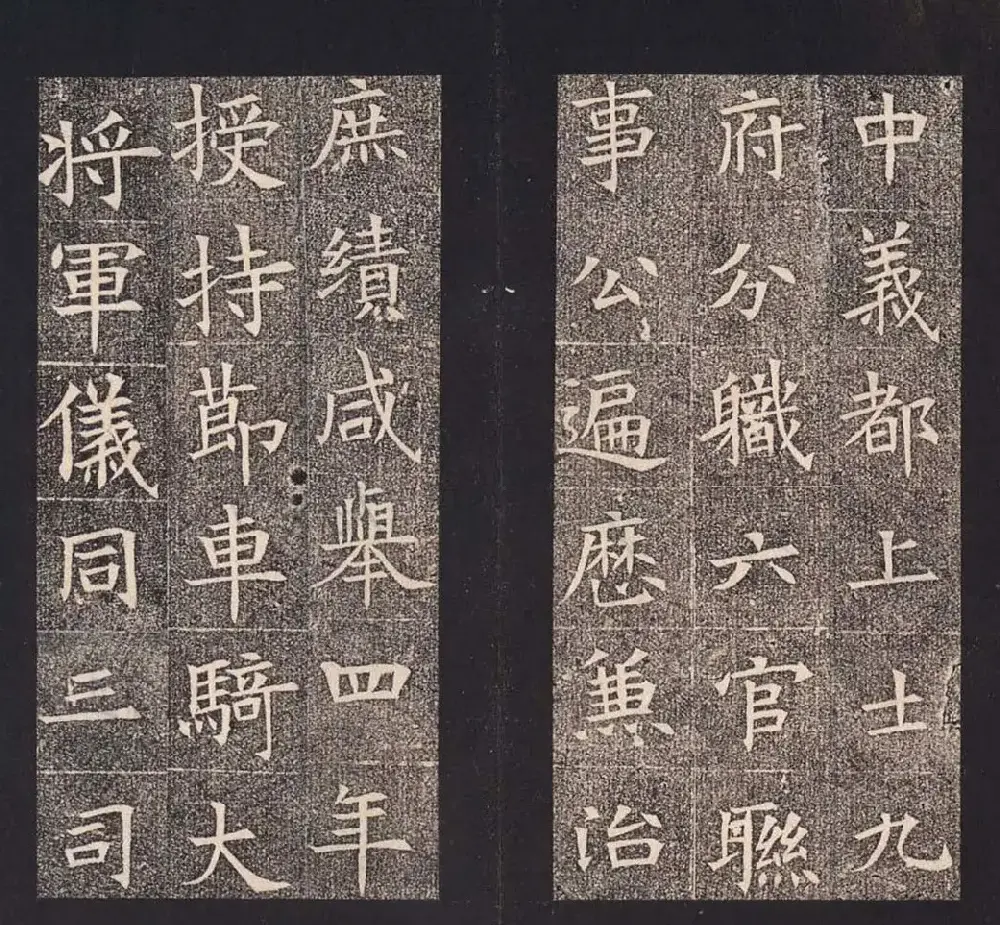 中義都上士九
府分職六官聯
事公遍歷兼治
庶績咸舉四年
授持節車騎大
將軍儀同三司